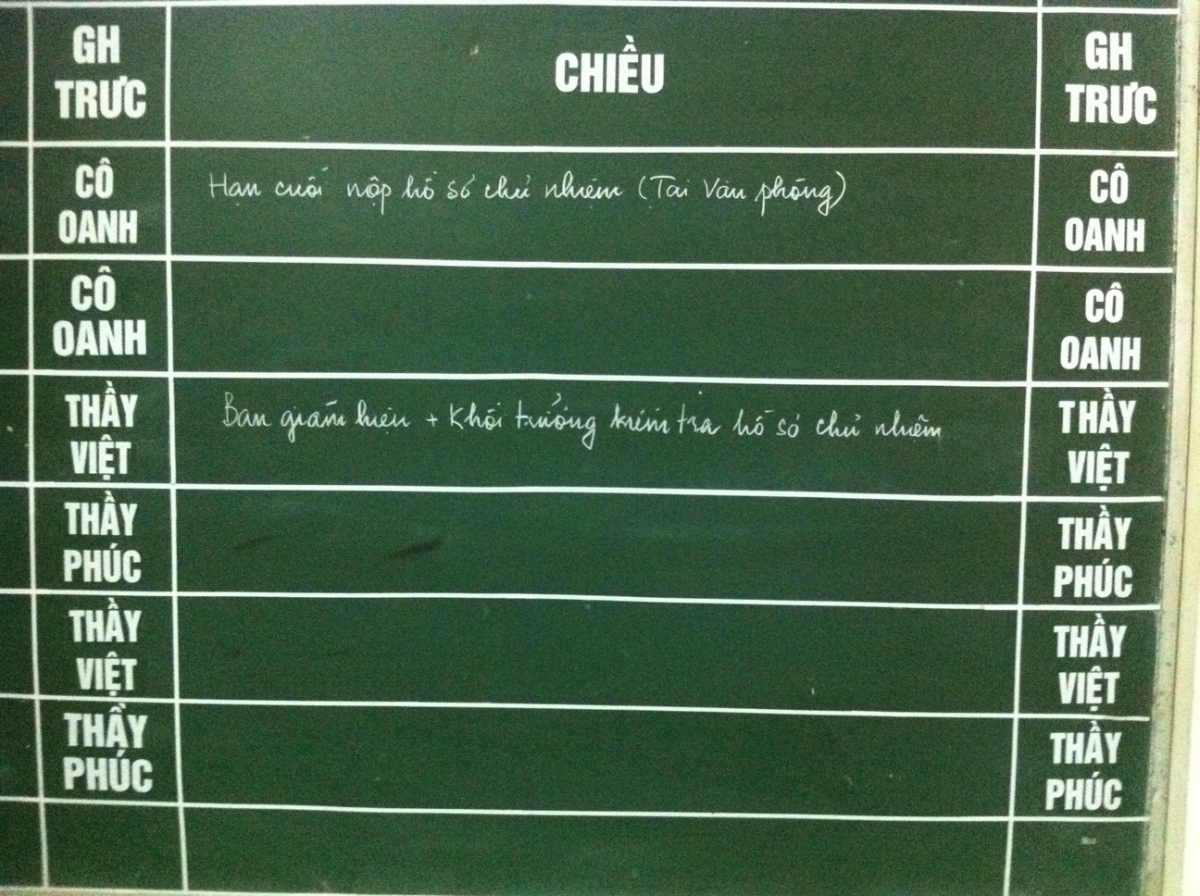 GH TRƯC CHIỀU GH TRƯC
CÔ OANH Hạn cuối nộp hồ sơ chủ nhiệm (Tại Văn phòng) CÔ OANH
CÔ OANH CÔ OANH
THẦY VIỆT Ban giám hiệu + Khối trưởng kiểm tra hồ sơ chủ nhiệm THẦY VIỆT
THẦY PHÚC THẦY PHÚC
THẦY VIỆT THẦY VIỆT
THẦY PHÚC THẦY PHÚC